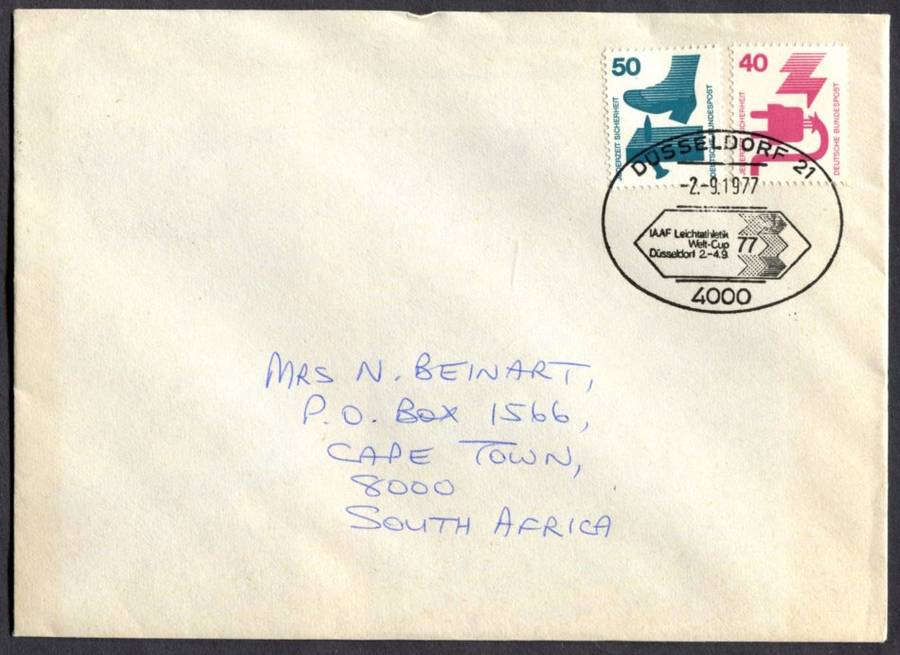 50
JEDERZEIT SICHERHEIT
DEUTSCHE BUNDESPOST
40
JEDERZEIT SICHERHEIT
DEUTSCHE BUNDESPOST
DÜSSELDORF 21
-2.-9.1977
IAAF Leichtathletik
Welt-Cup 77
Düsseldorf 2.-4.9.
4000
MRS N. BEINART,
P.O. BOX 1566,
CAPE TOWN,
8000
SOUTH AFRICA